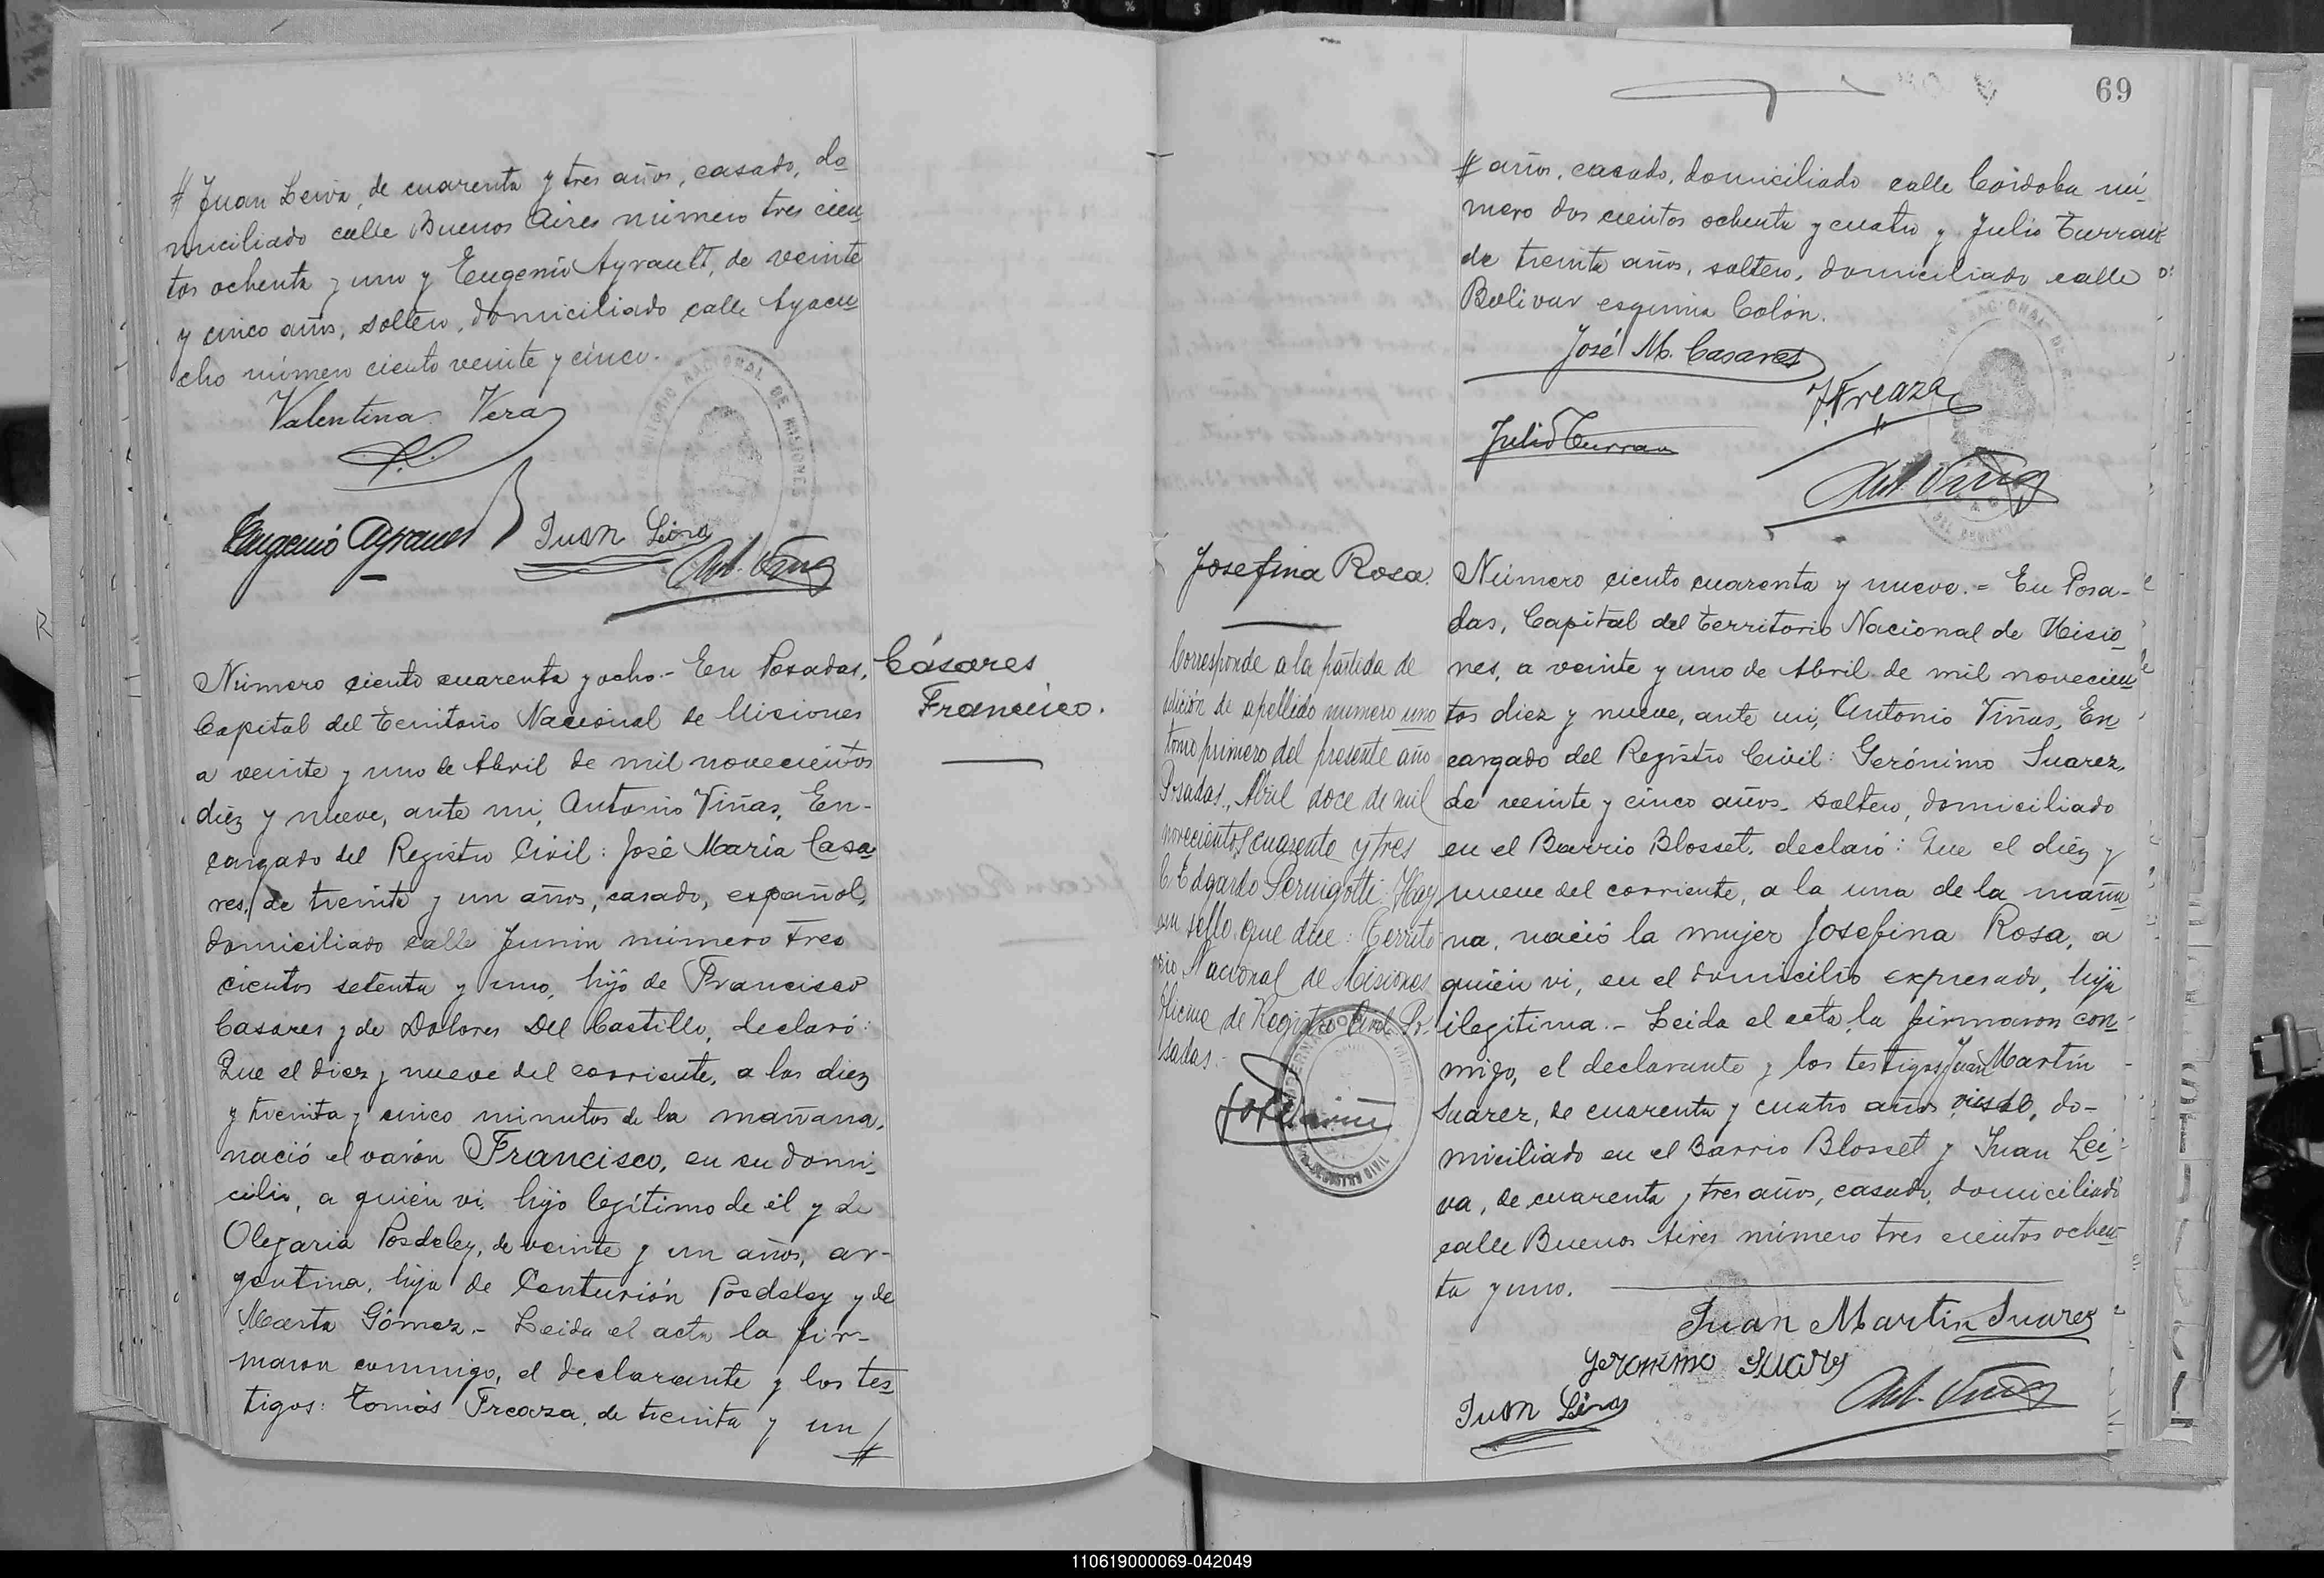 # Juan Leiva, de cuarenta y tres años, casado, do
miciliado calle Buenos Aires número tres cien
tos ochenta y uno y Eugenio Ayrault, de veinte
y cinco años, soltero, domiciliado calle Ayacu
cho número ciento veinte y cinco.
Valentina Vera
Eugenio Ayrault
Juan Leiva
Ant. Viñas
TERRITORIO NACIONAL DE MISIONES
Número ciento cuarenta y ocho.- En Posadas,
Capital del Territorio Nacional de Misiones
a veinte y uno de Abril de mil novecientos
diez y nueve, ante mi, Antonio Viñas, En-
cargado del Registro Civil: José María Casa
res, de treinta y un años, casado, español,
domiciliado calle Junin número tres
cientos setenta y uno, hijo de Francisco
Casares y de Dolores Del Castillo, declaró:
Que el diez y nueve del corriente, a las diez
y treinta y cinco minutos de la mañana,
nació el varón Francisco, en su domi
cilio, a quién vi, hijo legítimo de él y de
Olegaria Posdeley, de veinte y un años, ar-
gentina, hija de Centurión Posdeley y de
Marta Gómez.- Leida el acta la fir-
maron conmigo, el declarante y los tes
tigos: Tomás Freaza, de treinta y un #
Cásares
Francisco.
69
# años, casado, domiciliado calle Córdoba nú
mero dos cientos ochenta y cuatro y Julio Turrau
de treinta años, soltero, domiciliado calle
Bolivar esquina Colón.
José M. Casares
T. Freaza
Julio Turrau
Ant. Viñas
Josefina Rosa.
Corresponde a la partida de
adición de apellido numero uno
tomo primero del presente año
Posadas, Abril doce de mil
novecientos cuarenta y tres
C. Edgardo Sernigotti. Hay
un sello que dice: Territo
rio Nacional de Misiones
Oficina de Registro Civil Po
sadas.-
REGISTRO CIVIL
Número ciento cuarenta y nueve.= En Posa-
das, Capital del Territorio Nacional de Misio
nes, a veinte y uno de Abril de mil novecien
tos diez y nueve, ante mi, Antonio Viñas, En
cargado del Registro Civil: Gerónimo Suarez,
de veinte y cinco años, soltero, domiciliado
en el Barrio Blosset, declaró: Que el diéz y
nueve del corriente, a la una de la maña
na, nació la mujer Josefina Rosa, a
quién vi, en el domicilio expresado, hija
ilegitima.- Leida el acta, la firmaron con
migo, el declarante y los testigos Juan Martín
Suarez, de cuarenta y cuatro años, viudo, do-
miciliado en el Barrio Blosset y Juan Lei-
va, de cuarenta y tres años, casado, domiciliado
calle Buenos Aires número tres cientos ochen
ta y uno.
Juan Martin Suarez
Jeronimo Suares
Juan Leiva
Ant. Viñas
110619000069-042049